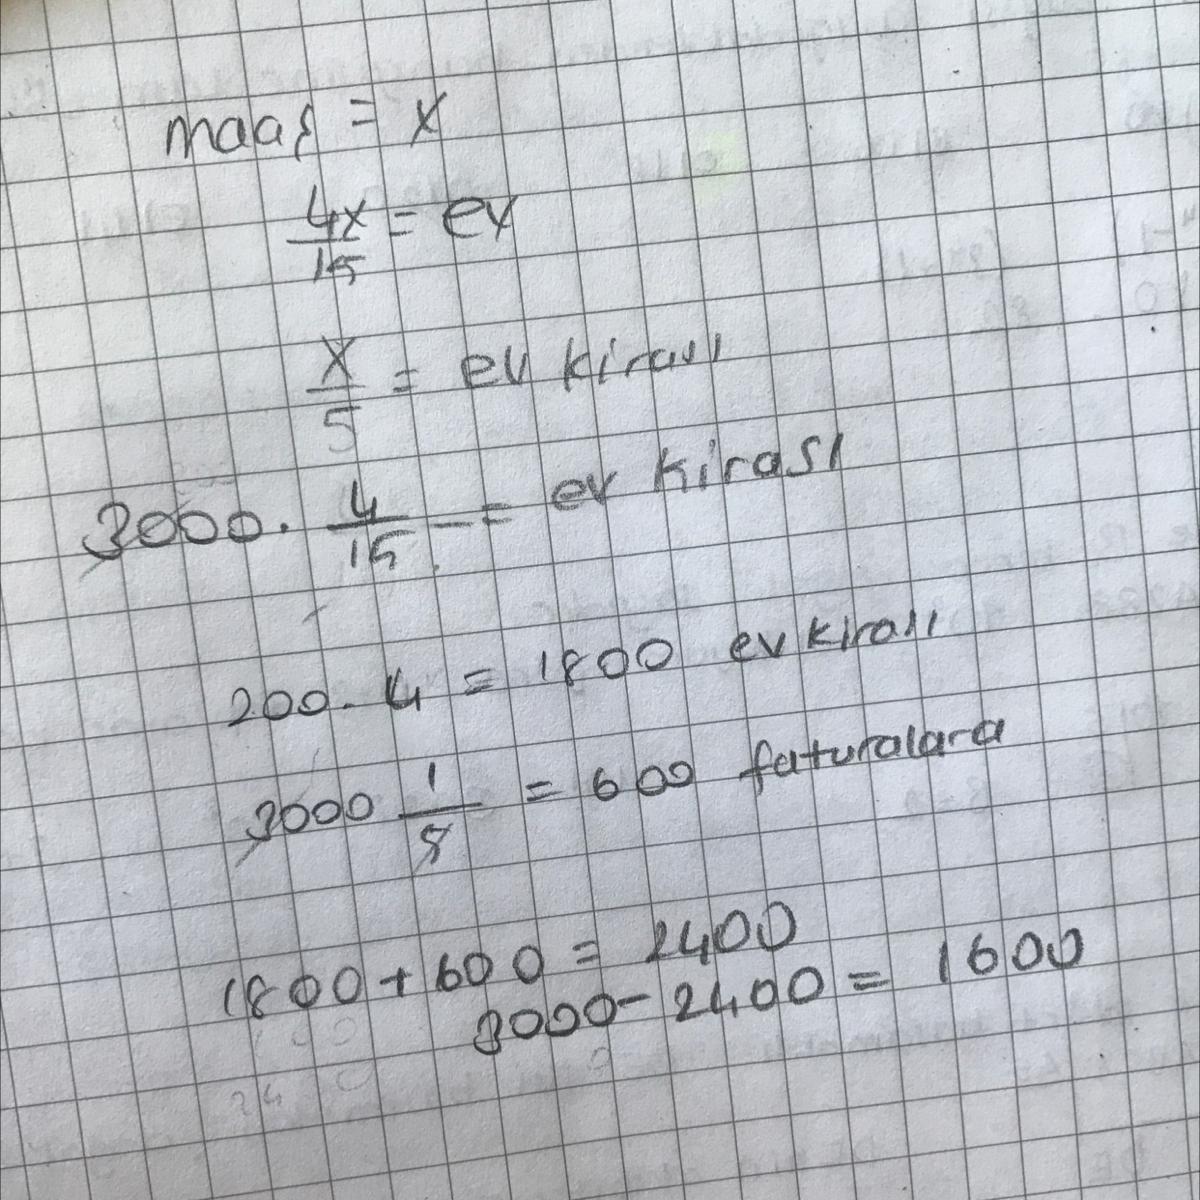 maaş = x
4x/15 = ev
x/5 = ev kirası
3000 . 4/15 = ev kirası
200 . 4 = 1800 ev kirası
3000 1/5 = 600 faturalara
1800 + 600 = 2400
3000 - 2400 = 1600